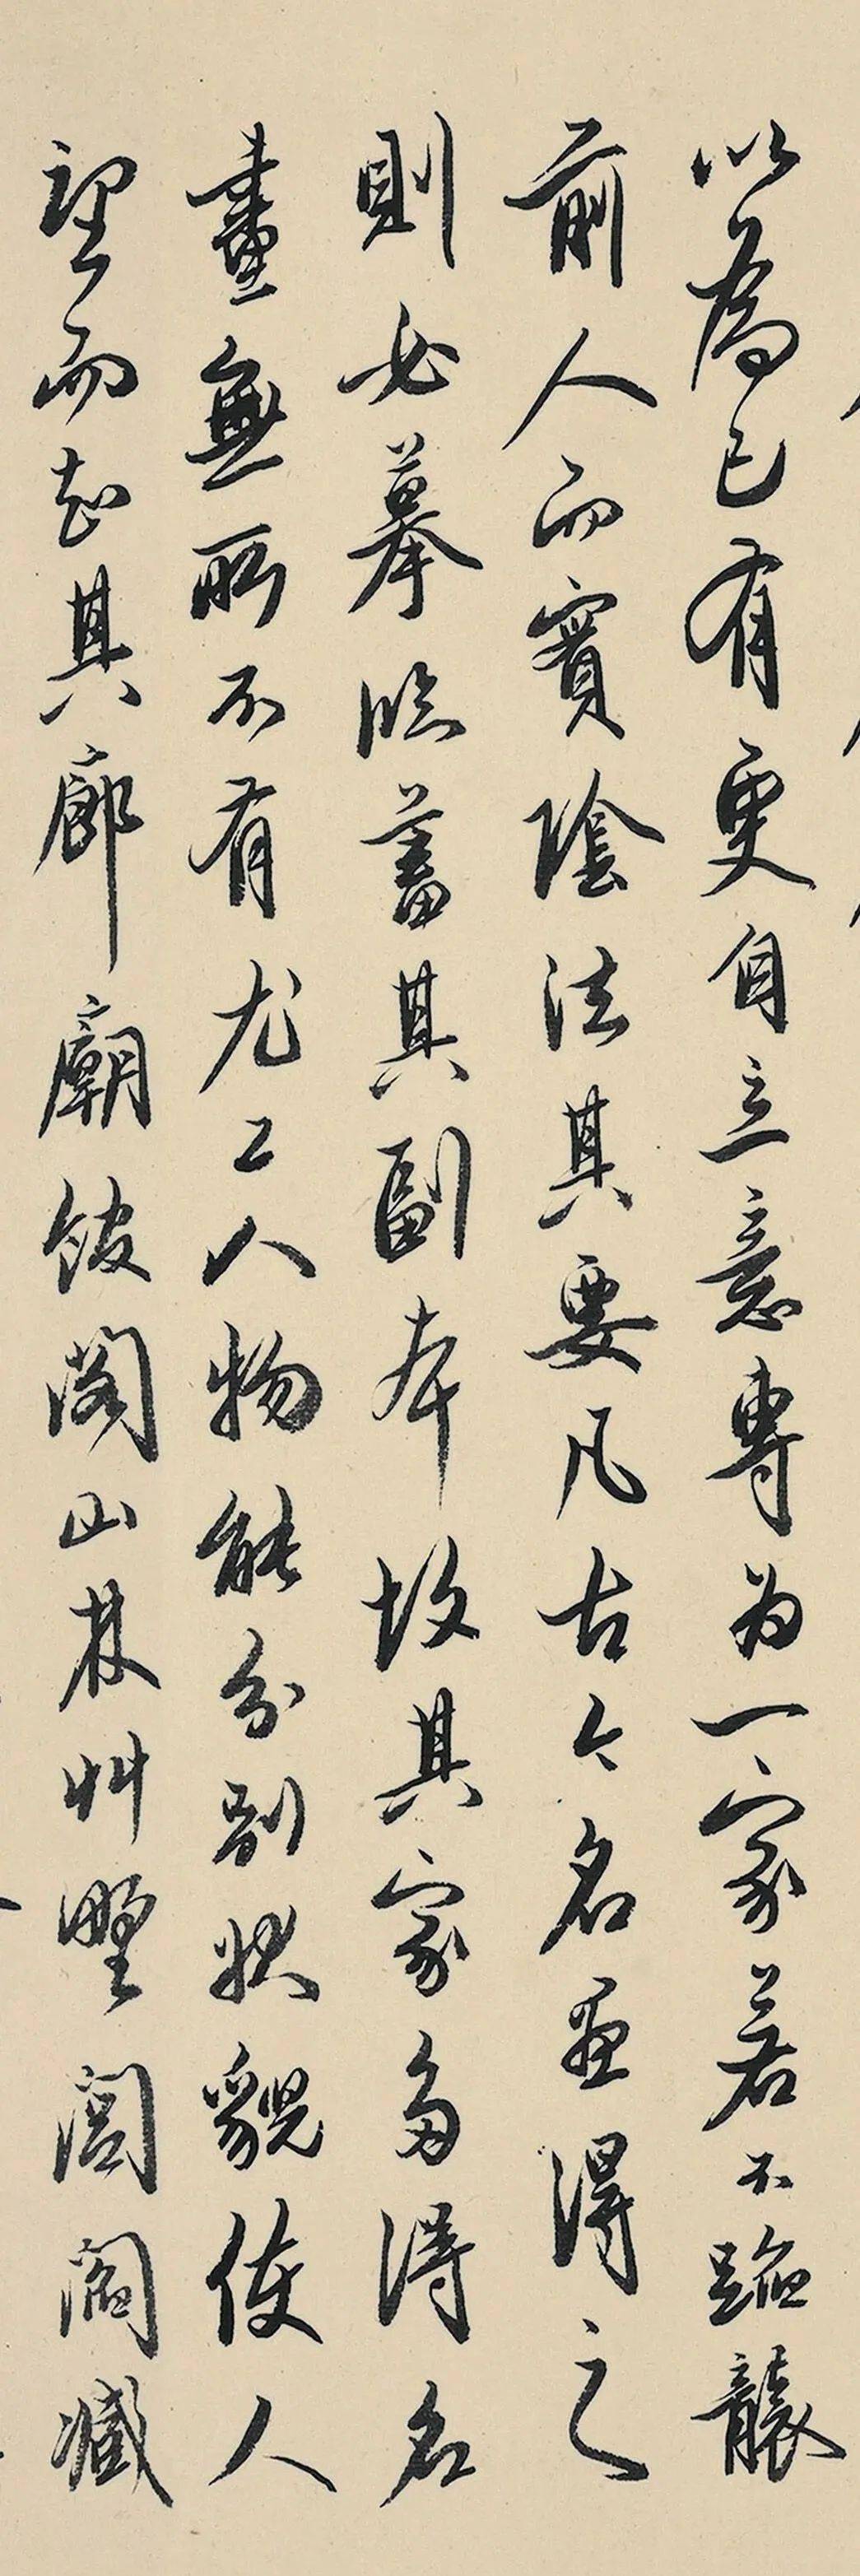 以為己有更自立意專为一家若不蹈襲
前人而實陰法其要凡古今名畫得之
則必摹臨蓄其副本故其家多得名
畫無所不有尤工人物能分別狀貌使人
望而知其廊廟館閣山林艸野閭閻臧